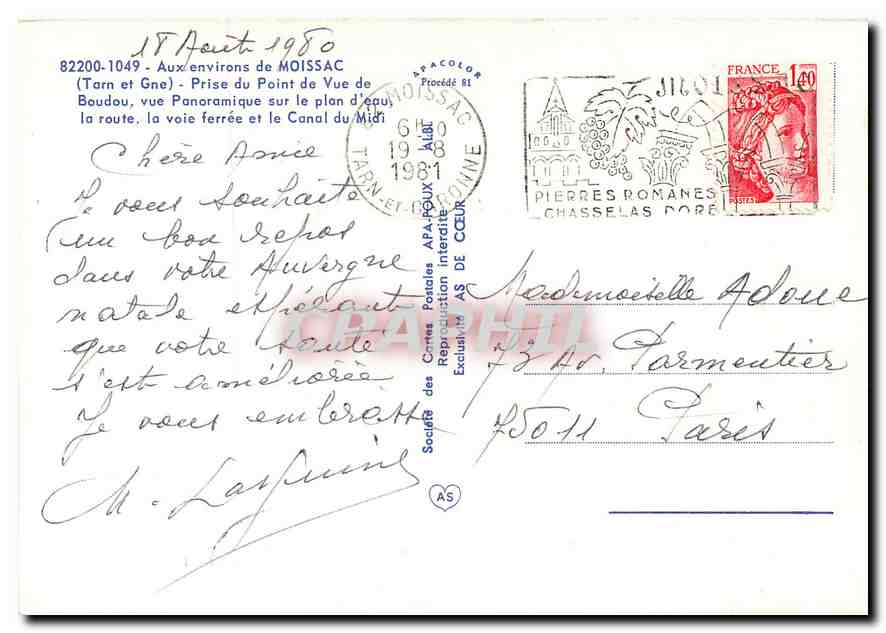 18 Août 1980
82200-1049 - Aux environs de MOISSAC
(Tarn et Gne) - Prise du Point de Vue de
Boudou, vue Panoramique sur le plan d'eau,
la route, la voie ferrée et le Canal du Midi
APACOLOR
Procédé 81
82 MOISSAC
6H 0
19-8
1981
TARN-ET-GARONNE
PIERRES ROMANES
CHASSELAS DORÉ
FRANCE 1,40
POSTES
Chère Amie
Je vous souhaite
un bon repos
dans votre Auvergne
natale espérant
que votre santé
s'est améliorée
Je vous embrasse
M.
Société des Cartes Postales APA-POUX ALBI
Reproduction interdite
Exclusivité AS DE CŒUR
AS
Mademoiselle Adoue
73 Av. Parmentier
75011 Paris
CPAPHIL